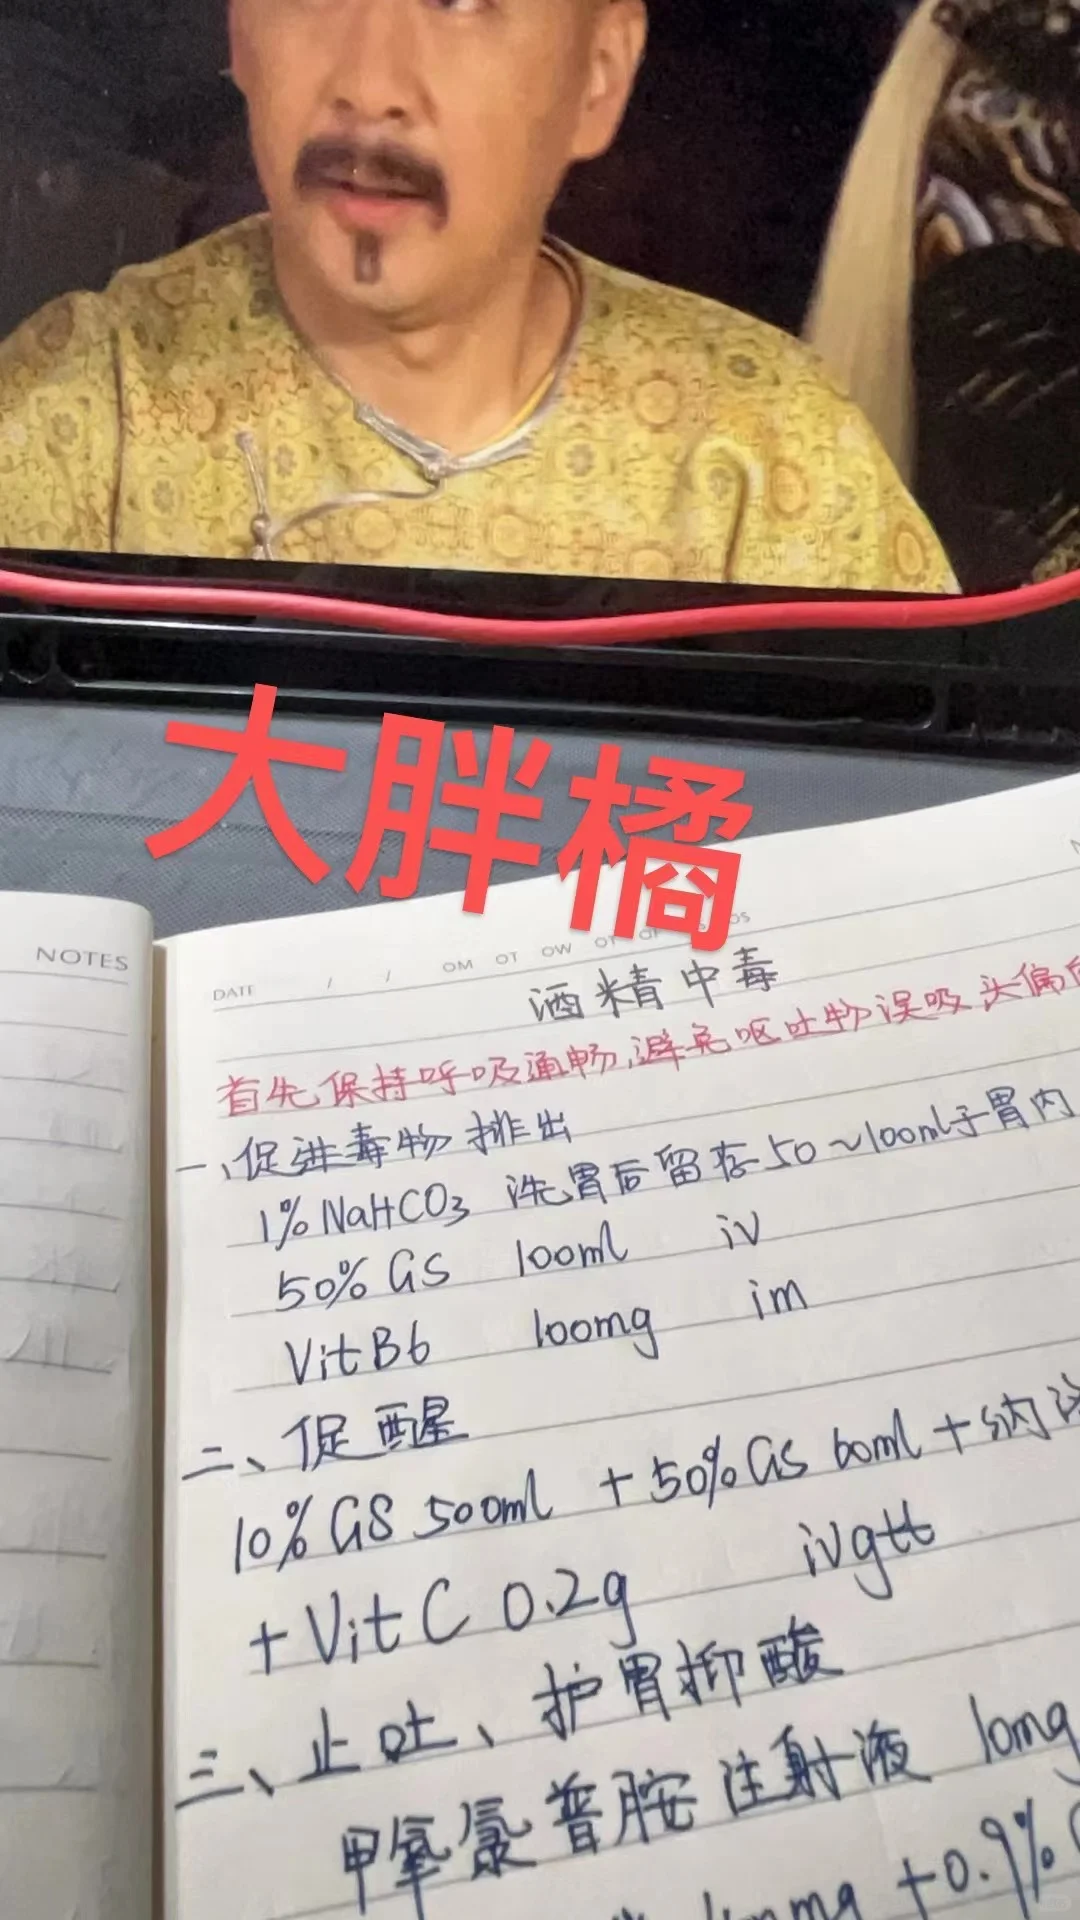 大胖橘
NOTES
DATE / / OM OT OW OT OF OS
酒精中毒
首先保持呼吸通畅,避免呕吐物误吸 头偏向
一、促进毒物排出
1% NaHCO3 洗胃后留存50~100ml于胃内
50% GS 100ml iv
VitB6 100mg im
二、促醒
10% GS 500ml + 50% GS 60ml + 纳洛
+ Vit C 0.2g ivgtt
三、止吐、护胃抑酸
甲氧氯普胺注射液 10mg
mg +0.9%